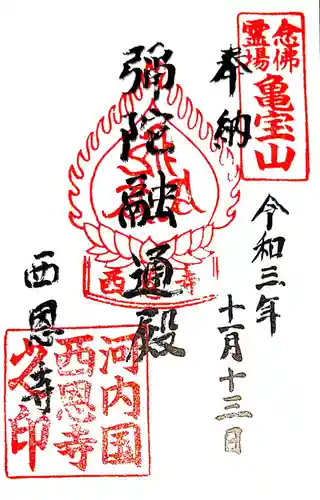 念佛
霊場
亀宝山
奉納
令和三年
十一月十三日
弥陀融通殿
西恩寺
西 寺
河内国
西恩寺
印